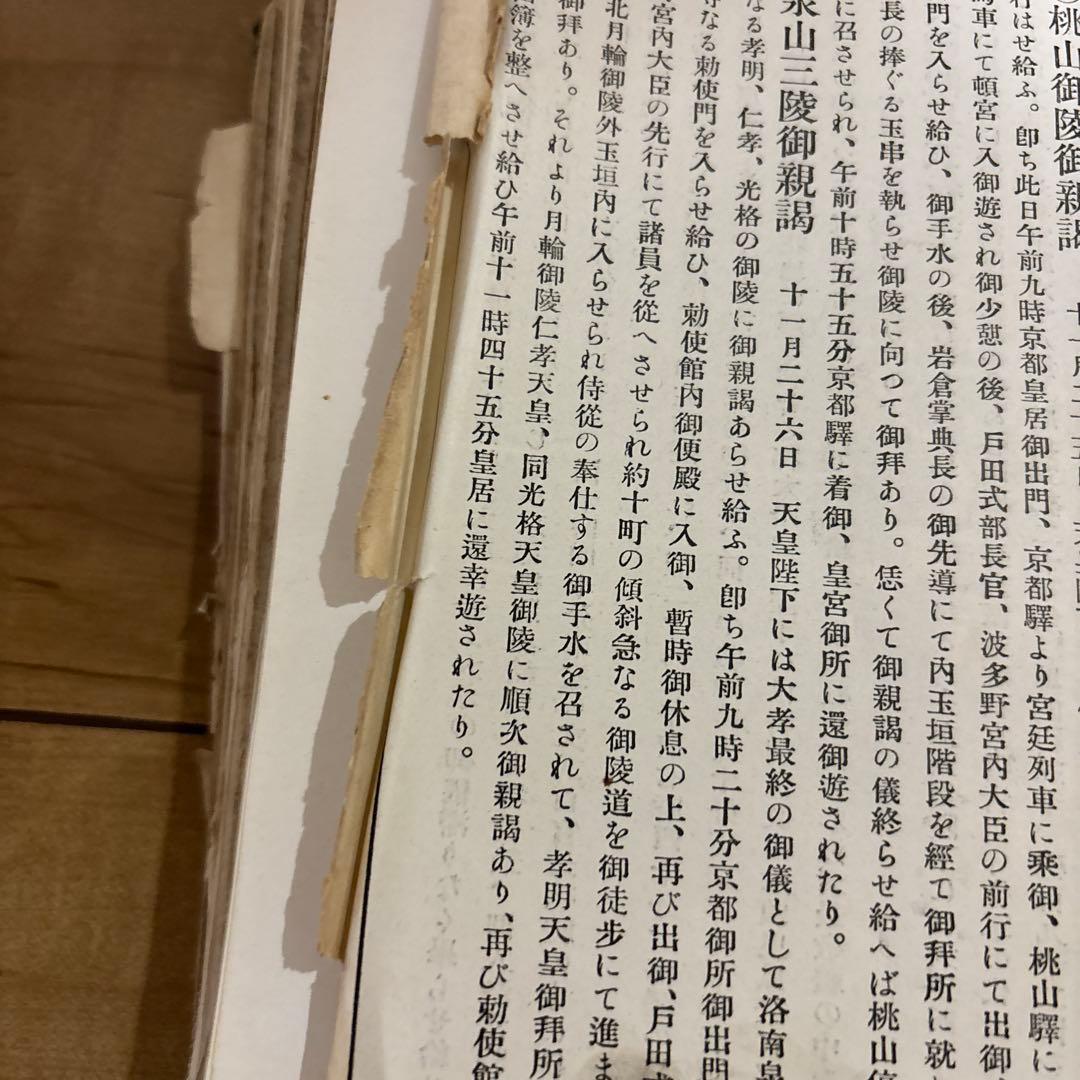 桃山御陵御親謁 十一月二十五日
行はせ給ふ。卽ち此日午前九時京都皇居御出門、京都驛より宮廷列車に乘御、桃山驛に
馬車にて頓宮に入御遊され御少憩の後、戸田式部長官、波多野宮內大臣の前行にて出御
門を入らせ給ひ、御手水の後、岩倉掌典長の御先導にて內玉垣階段を經て御拜所に就
長の捧ぐる玉串を執らせ御陵に向つて御拜あり。恁くて御親謁の儀終らせ給へば桃山停
に召させられ、午前十時五十五分京都驛に着御、皇宮御所に還御遊されたり。
泉山三陵御親謁 十一月二十六日 天皇陛下には大孝最終の御儀として洛南泉
なる孝明、仁孝、光格の御陵に御親謁あらせ給ふ。卽ち午前九時二十分京都御所御出門
なる勅使門を入らせ給ひ、勅使館內御便殿に入御、暫時御休息の上、再び出御、戸田式
宮內大臣の先行にて諸員を從へさせられ約十町の傾斜急なる御陵道を御徒步にて進ま
北月輪御陵外玉垣內に入らせられ侍從の奉仕する御手水を召されて、孝明天皇御拜所
御拜あり。それより月輪御陵仁孝天皇、同光格天皇御陵に順次御親謁あり、再び勅使館
簿を整へさせ給ひ午前十一時四十五分皇居に還幸遊されたり。